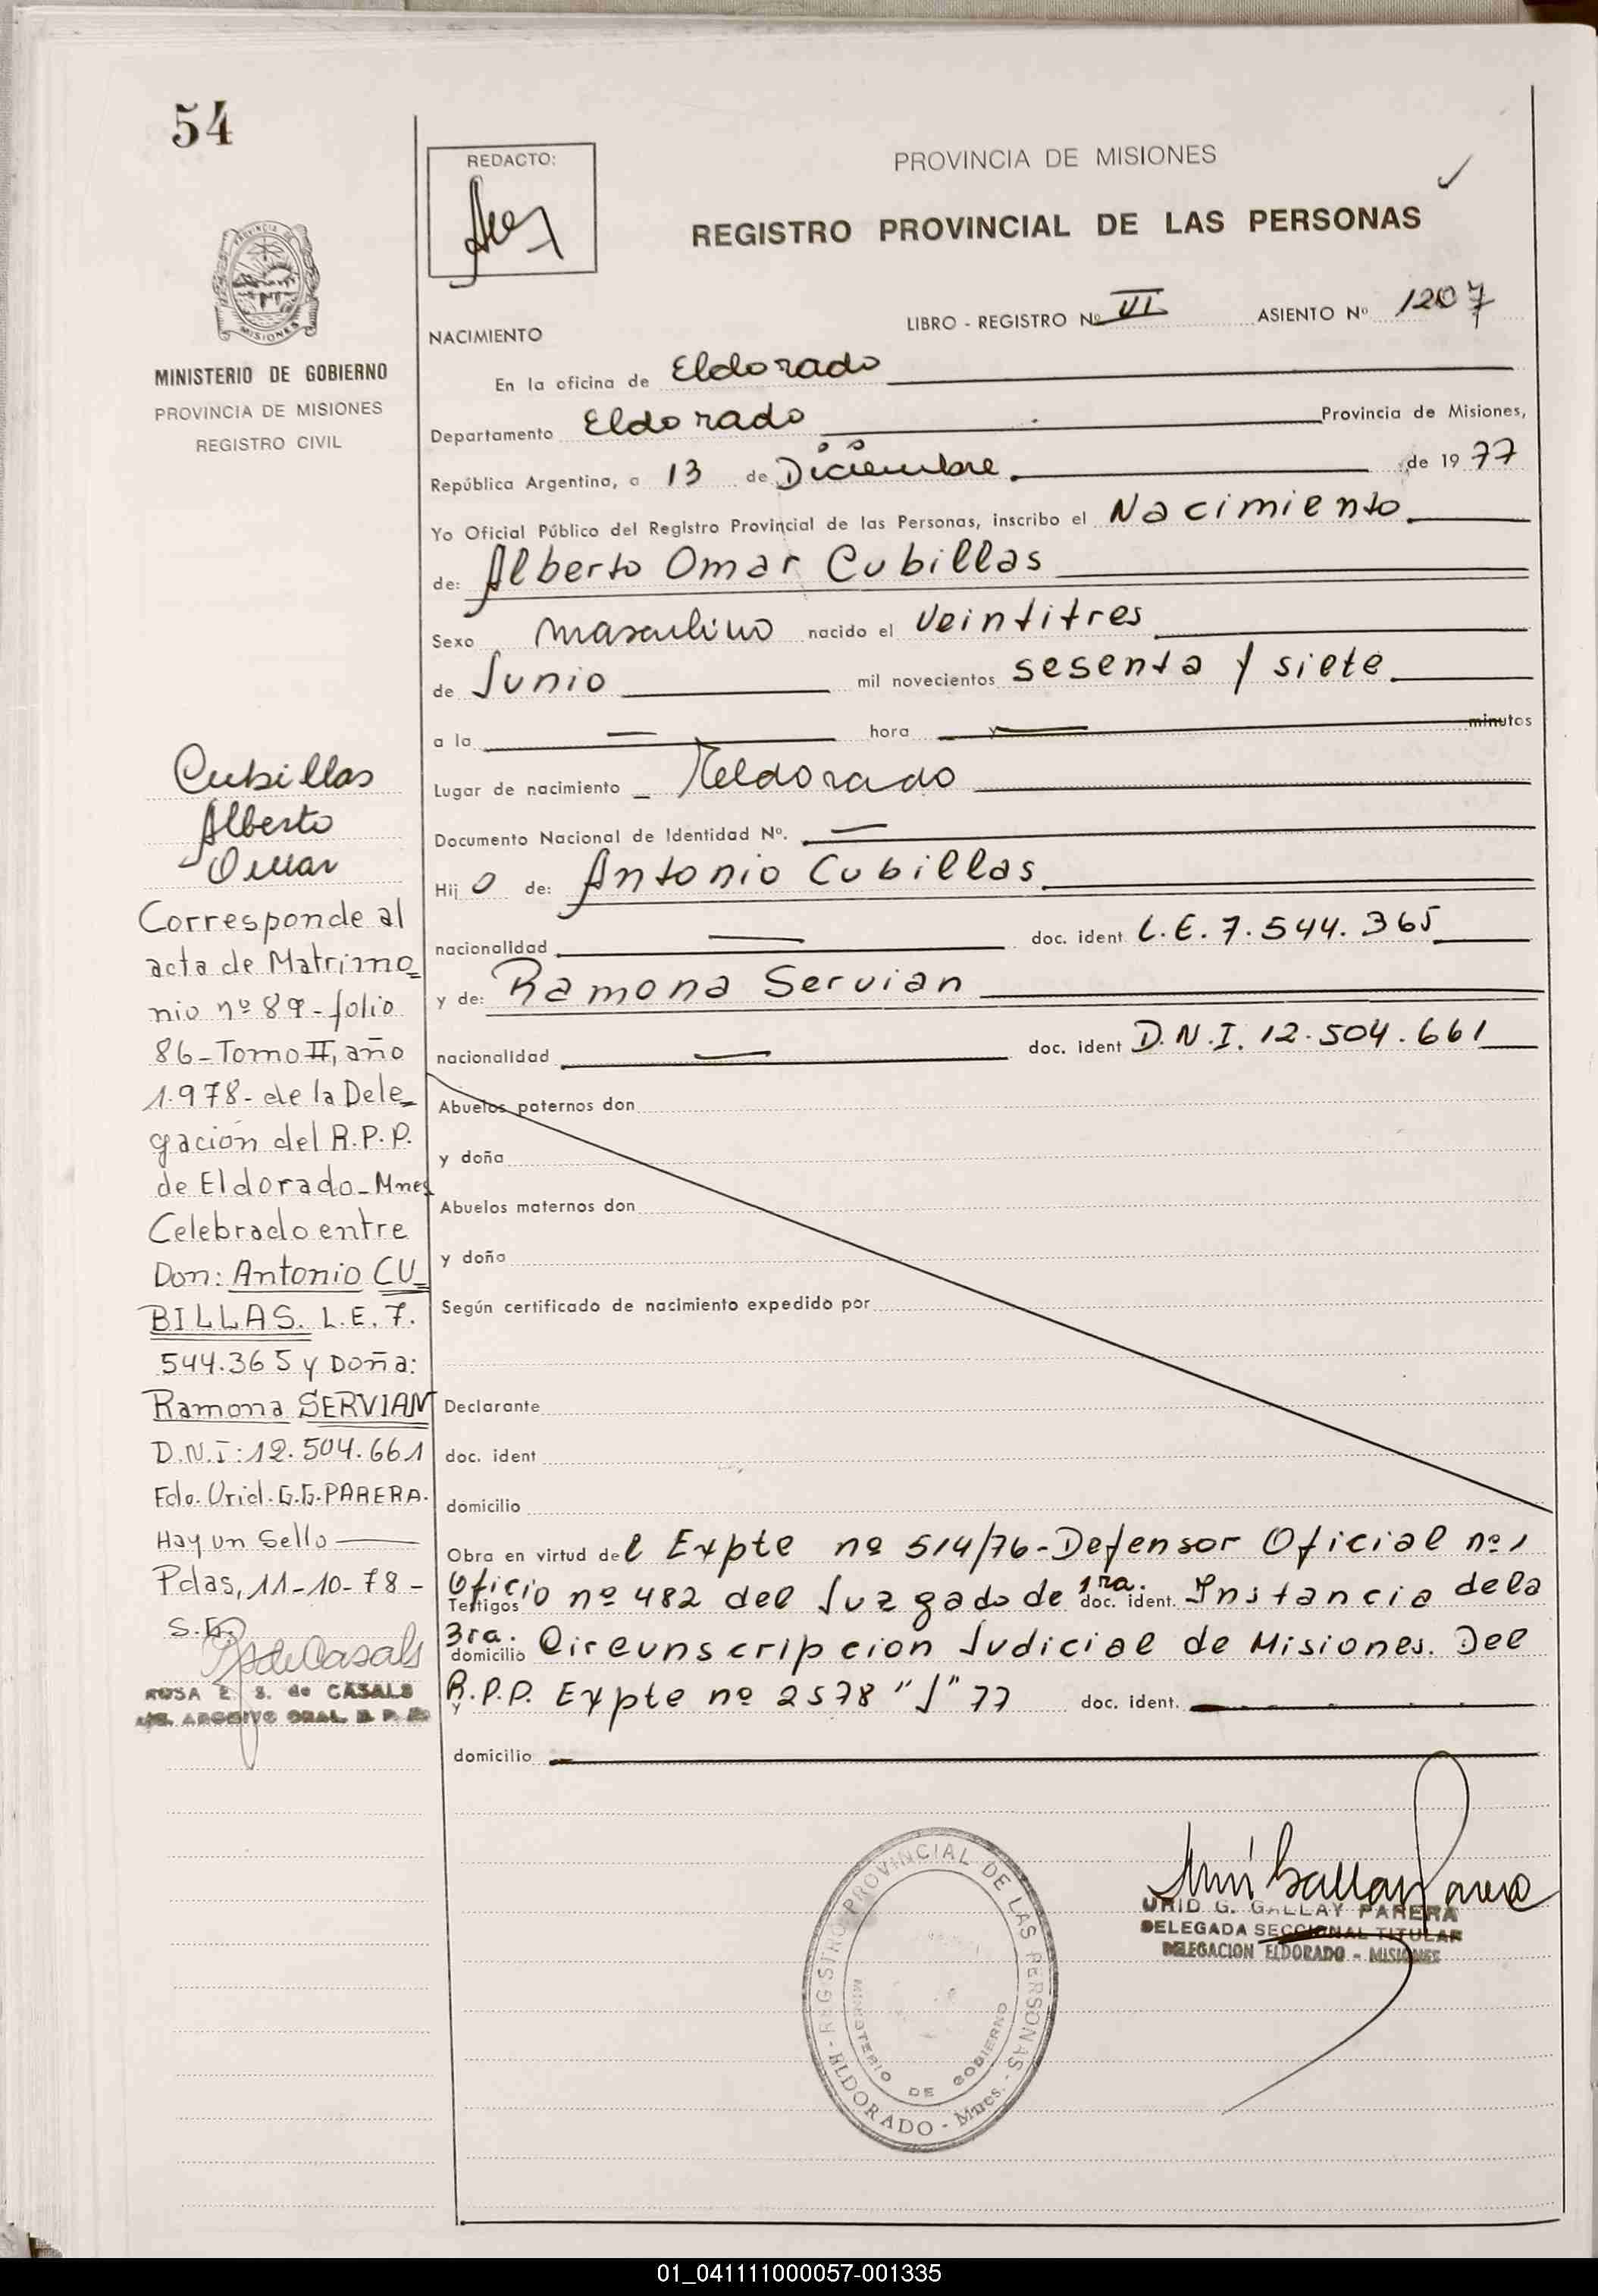 54
REDACTO:
PROVINCIA DE MISIONES
REGISTRO PROVINCIAL DE LAS PERSONAS
LIBRO - REGISTRO Nº VI ASIENTO Nº 1207
NACIMIENTO
PROVINCIA DE MISIONES
MINISTERIO DE GOBIERNO
PROVINCIA DE MISIONES
REGISTRO CIVIL
En la oficina de Eldorado
Departamento Eldorado Provincia de Misiones,
República Argentina, a 13 de Diciembre de 1977
Yo Oficial Público del Registro Provincial de las Personas, inscribo el Nacimiento
de: Alberto Omar Cubillas
Sexo masculino nacido el Veintitres
de Junio mil novecientos sesenta y siete
a la — hora y — minutos
Lugar de nacimiento — Eldorado
Documento Nacional de Identidad Nº. —
Hijo de: Antonio Cubillas
nacionalidad — doc. ident L.E. 7.544.365
y de: Ramona Servian
nacionalidad — doc. ident D.N.I. 12.504.661
Abuelos paternos don
y doña
Abuelos maternos don
y doña
Según certificado de nacimiento expedido por
Declarante
doc. ident
domicilio
Obra en virtud del Expte nº 514/76-Defensor Oficial nº 1
Testigos Oficio nº 482 del Juzgado de 1ra. doc. ident. Instancia de la
domicilio 3ra. Circunscripcion Judicial de Misiones. Del
y R.P.P. Expte nº 2578 "J" 77 doc. ident.
domicilio
Cubillas
Alberto
Omar
Corresponde al
acta de Matrimo
nio nº 89-folio
86-Tomo II, año
1.978- de la Dele
gación del R.P.P.
de Eldorado-Mnes
Celebrado entre
Don: Antonio CU
BILLAS. L.E. 7.
544.365 y Doña:
Ramona SERVIAN
D.N.I: 12.504.661
Fdo. Urid. G.G. PARERA.
Hay un Sello
Pdas, 11-10-78-
ROSA E. S. de CASALS
REGISTRO PROVINCIAL DE LAS PERSONAS
MINISTERIO DE GOBIERNO
ELDORADO - Mnes.
URID G. GALLAY PARERA
DELEGADA SECCIONAL TITULAR
DELEGACION ELDORADO - MISIONES
01_041111000057-001335